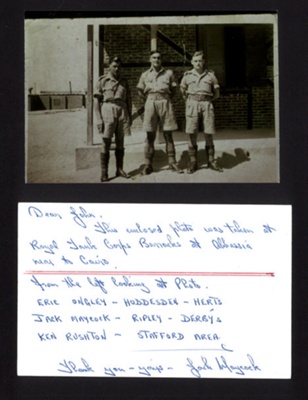 Dear John.
This enclosed photo was taken at
Royal Tank Corps Barracks at Abbassia
near to Cairo.
From the left looking at Photo.
ERIC ONGLEY - HODDESDEN - HERTS
JACK MAYCOCK - RIPLEY - DERBYS
KEN RUSHTON - STAFFORD AREA
Thank you - yours - Jack Maycock